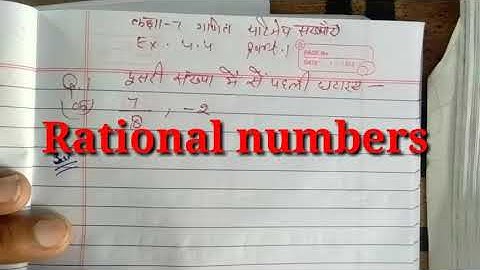 कक्षा-7 गणित परिमेय संख्याएँ
Ex. 4.4 part.1
PAGE NO.
DATE
Q.1 दूसरी संख्या में से पहली घटाइए –
7/8, -2
Rational numbers
Sol.